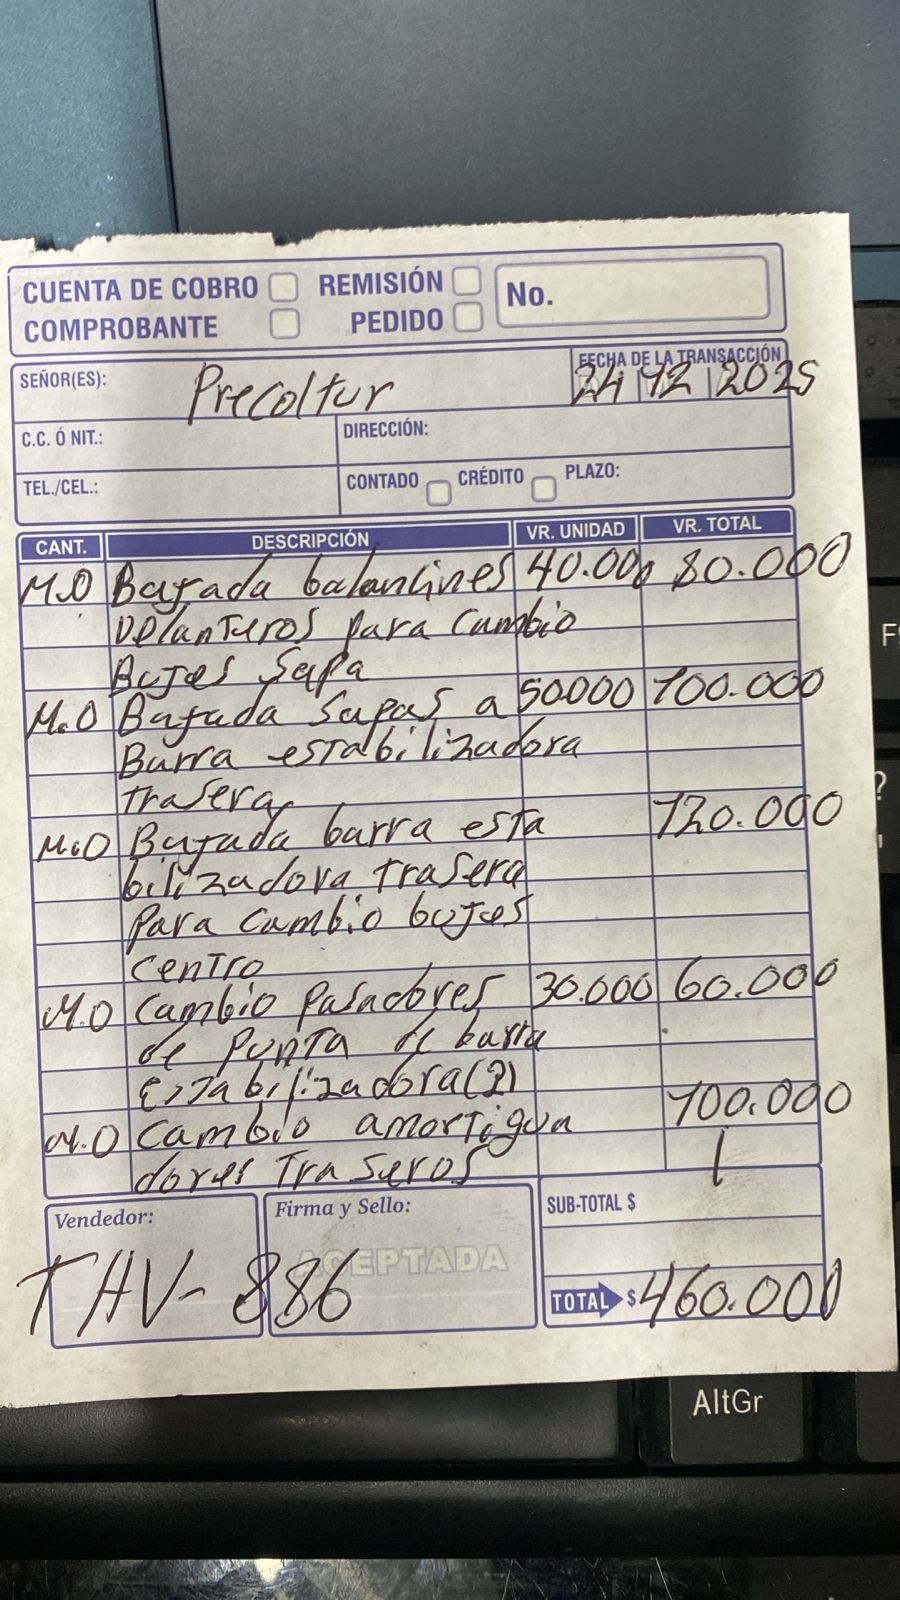 CUENTA DE COBRO REMISIÓN No.
COMPROBANTE PEDIDO
SEÑOR(ES): Precoltur FECHA DE LA TRANSACCIÓN
24 12 2025
C.C. Ó NIT.: DIRECCIÓN:
TEL./CEL.: CONTADO CRÉDITO PLAZO:
CANT. DESCRIPCIÓN VR. UNIDAD VR. TOTAL
M.O Bajada balancines 40.000 80.000
Delanteros para cambio
Bujes Sapa
M.O Bajada sapas a 50000 100.000
Barra estabilizadora
trasera
M.O Bajada barra esta 120.000
bilizadora trasera
Para cambio bujes
centro
M.O Cambio pasadores 30.000 60.000
de punta de barra
Estabilizadora (2)
M.O Cambio amortigua 100.000
dores traseros
Vendedor: Firma y Sello: SUB-TOTAL $
ACEPTADA
THV-886 TOTAL $ 460.000
AltGr